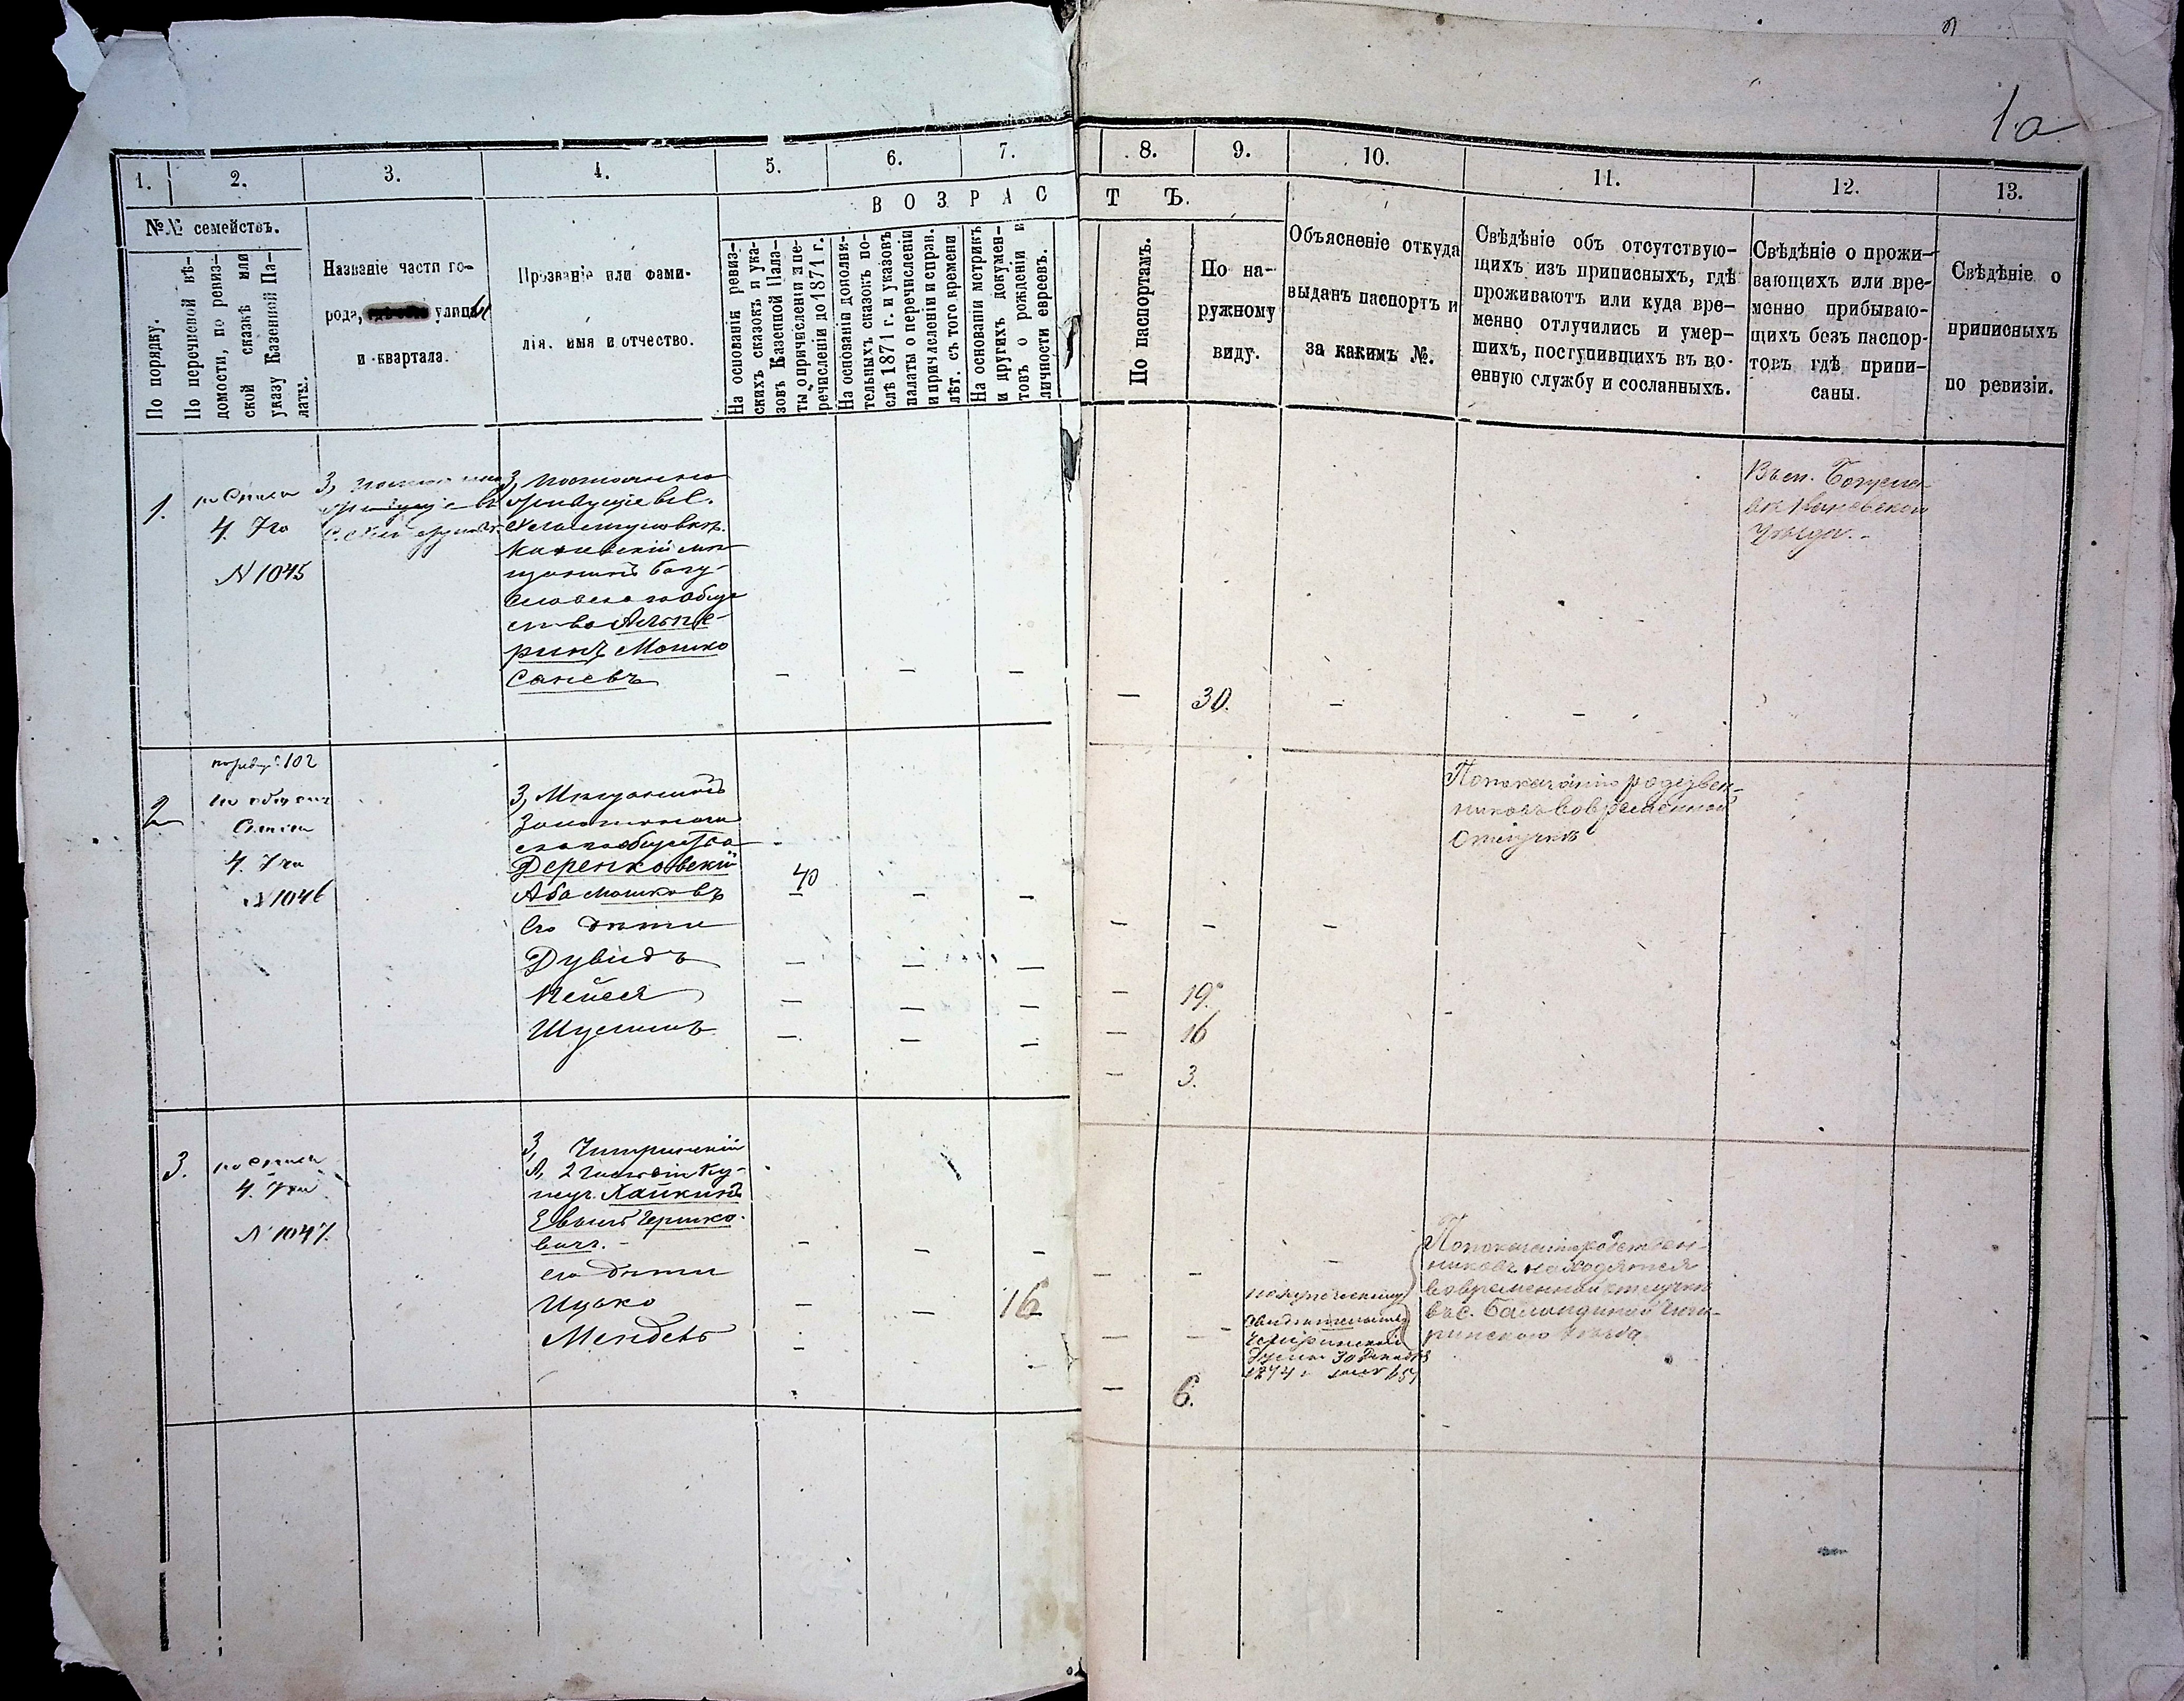 1.а
1. 2. 3. 4. 5. 6. 7. 8. 9. 10. 11. 12. 13.
ВОЗРАСТЪ.
№№ семействъ.
По порядку.
По перечневой вѣ-
домости, по ревиз-
ской сказкѣ или
указу Казенной Па-
латы.
Названіе части го-
рода, улицы
и квартала.
Прозваніе или фами-
лія, имя и отчество.
На основаніи ревиз-
скихъ сказокъ и ука-
зовъ Казенной Пала-
ты о причисленіи и пе-
речисленіи до 1871 г.
На основаніи дополни-
тельныхъ сказокъ по-
слѣ 1871 г. и указовъ
палаты о перечисленіи
и причисленіи и справ.
лѣт. съ того времени
На основаніи метрикъ
и другихъ докумен-
товъ о рожденіи и
личности евреевъ.
По паспортамъ.
По на-
ружному
виду.
Объясненіе откуда
выданъ паспортъ и
за какимъ №.
Свѣдѣніе объ отсутствую-
щихъ изъ приписныхъ, гдѣ
проживаютъ или куда вре-
менно отлучились и умер-
шихъ, поступившихъ въ во-
енную службу и сосланныхъ.
Свѣдѣніе о прожи-
вающихъ или вре-
менно прибываю-
щихъ безъ паспор-
товъ гдѣ припи-
саны.
Свѣдѣніе о
приписныхъ
по ревизіи.
1.
4. 7го
N 1045
З,
Каневскій мѣ-
щанинъ Богу-
славскаго обще
ства Альпе-
ринъ Мошко
Саневъ
— — —
— 30. — —
Въ м. Богусла-
вѣ Каневскаго
Уѣзда.
2
102
4. 7го
N 1046
З, Мѣщанинъ
Деренковскій
Аба Мошковъ
40 — —
— — —
Его дѣти
Дувидъ
— — —
— 19.
Лейся
— — —
— 16
Шулимъ
— — —
— 3.
По показанію родствен-
никовъ во временной
отлучкѣ
3.
4. 7го
N 1047.
З, Чигиринскій
2 Гильдіи Ку-
пецъ. Хайкинъ
Гершко-
вичъ.
— — —
— — —
его дѣти
Ицько
— — 16
— —
Мендель
— 6.
По купеческому
свидѣтельству
Чигиринской
Думы 30 Декабря
1874 г.
По показанію родствен-
никовъ находятся
во временной отлучкѣ
въ с. Чиги-
ринскаго Уѣзда